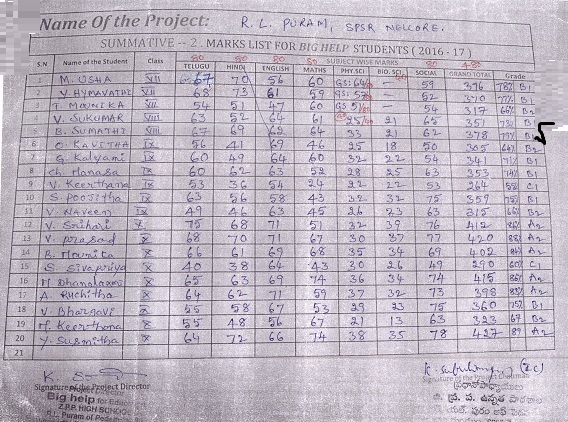 Name Of the Project: R. L. PURAM, SPSR NELLORE.
SUMMATIVE -- 2 MARKS LIST FOR BIG HELP STUDENTS ( 2016 - 17 )
80 80 80 80 SUBJECT WISE MARKS 80 480
S.N Name of the Student Class TELUGU HINDI ENGLISH MATHS PHY.SCI BIO. SCI SOCIAL GRAND TOTAL Grade
1 M. USHA VII 67 70 56 60 GS: 64 — 59 376 78% B1
2 Y. HYMAVATHI VII 68 73 61 59 GS: 57 — 52 370 77% B1
3 T. MOUNIKA VIII 54 51 47 60 GS 51 — 54 317 66% B2
4 V. SUKUMAR VIII 63 52 64 61 25 21 65 351 73% B1
5 B. SUMATHI VIII 67 69 62 64 33 21 62 378 79% B1
6 O. KAVITHA IX 56 41 69 46 25 18 50 305 64% B2
7 G. Kalyani IX 60 49 64 60 32 22 54 341 71% B1
8 Ch. Manasa IX 60 62 63 52 28 25 63 353 74% B1
9 V. Keerthana IX 53 36 54 24 22 22 53 264 55% C1
10 S. Poojitha IX 63 56 58 43 32 32 75 359 75% B1
11 V. Naveen IX 49 46 63 45 26 23 63 315 66% B2
12 V. Srihari X 75 68 71 51 32 39 76 412 86% A2
13 V. prasad X 68 70 71 67 30 37 77 420 88% A2
14 B. Mounica X 66 61 69 68 35 34 69 402 84% A2
15 S. Sivapriya X 40 38 64 43 30 26 49 290 60% C1
16 M. Dhanalaxmi X 65 63 69 74 36 34 74 415 86% A2
17 A. Ruchitha X 64 62 71 59 37 32 73 398 83% A2
18 V. Bhargavi X 55 58 67 53 29 23 75 360 75% B1
19 M. Keerthana X 55 48 56 67 21 13 63 323 67 B2
20 Y. Susmitha X 64 72 66 74 38 35 78 427 89 A2
21
Signature of the Project Director
Big help for
Z.P.P. HIGH SCHOOL
Signature of the
ప్రధానోపాధ్యాయులు